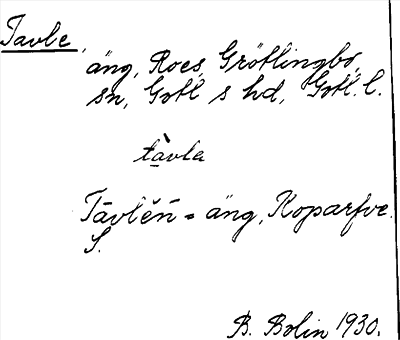 Tavle,
äng, Roes, Grötlingbo,
sn, Gotl s hd, Gotl. l.
tàvla
Tāvlĕn = äng, Koparfve.
S.
B. Bolin 1930.